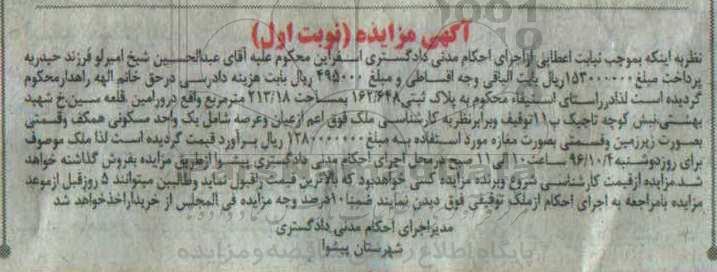 آگهی مزایده (نوبت اول)
نظربه اینکه بموجب نیابت اعطایی ازاجرای احکام مدنی دادگستری اسفراین محکوم علیه آقای عبدالحسین شیخ امیرلو فرزند حیدربه
پرداخت مبلغ ۱۵۳۰۰۰۰۰۰ریال بابت الباقی وجه اقساطی و مبلغ ۴۹۵۰۰۰ ریال بابت هزینه دادرسی درحق خانم الهه راهدارمحکوم
گردیده است لذادرراستای استیفاء محکوم به پلاک ثبتی ۱۶۲/۶۴۸ بمساحت ۲۱۳/۱۸ مترمربع واقع درورامین قلعه سین.خ شهید
بهشتی،نبش کوچه تاجیک ب۱۱توقیف وبرابرنظریه کارشناسی ملک فوق اعم ازعیان وعرصه شامل یک واحد مسکونی همکف وقسمتی
بصورت زیرزمین وقسمتی بصورت مغازه مورد استفاده به مبلغ ۱۲۸۰۰۰۰۰۰۰ ریال برآورد قیمت گردیده است لذا ملک موصوف
برای روزدوشنبه ۹۶/۱۰/۴ ساعت ۱۰الی ۱۱ صبح درمحل اجرای احکام مدنی دادگستری پیشوا ازطریق مزایده بفروش گذاشته خواهد
شد.مزایده ازقیمت کارشناسی شروع وبرنده مزایده کسی خواهدبود که بالاترین قیمت راقبول نماید وطالبین میتوانند ۵ روزقبل ازموعد
مزایده بامراجعه به اجرای احکام ازملک توقیفی فوق دیدن نمایند ضمنا۱۰درصد وجه مزایده فی المجلس از خریداراخذخواهد شد
مدیراجرای احکام مدنی دادگستری
شهرستان پیشوا